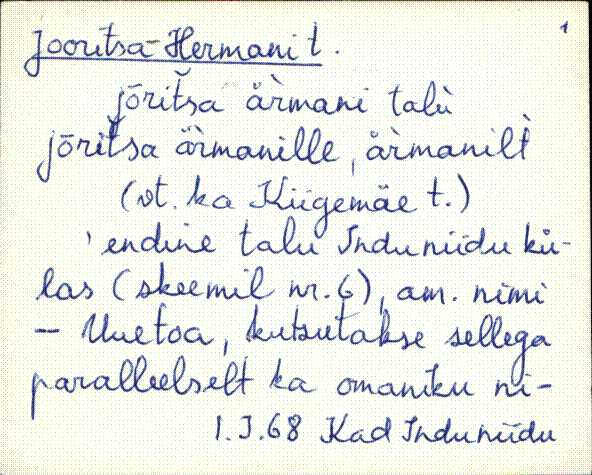 1
Jooritsa-Hermani t.
jōriťsa ärmani talu
jōriťsa ärmanille, ärmanilt
(vt. ka Kiigemäe t.)
' endine talu Induniidu kü-
las (skeemil nr. 6), am. nimi
– Uuetoa, kutsutakse sellega
paralleelselt ka omaniku ni-
1.I.68 Kad Induniidu